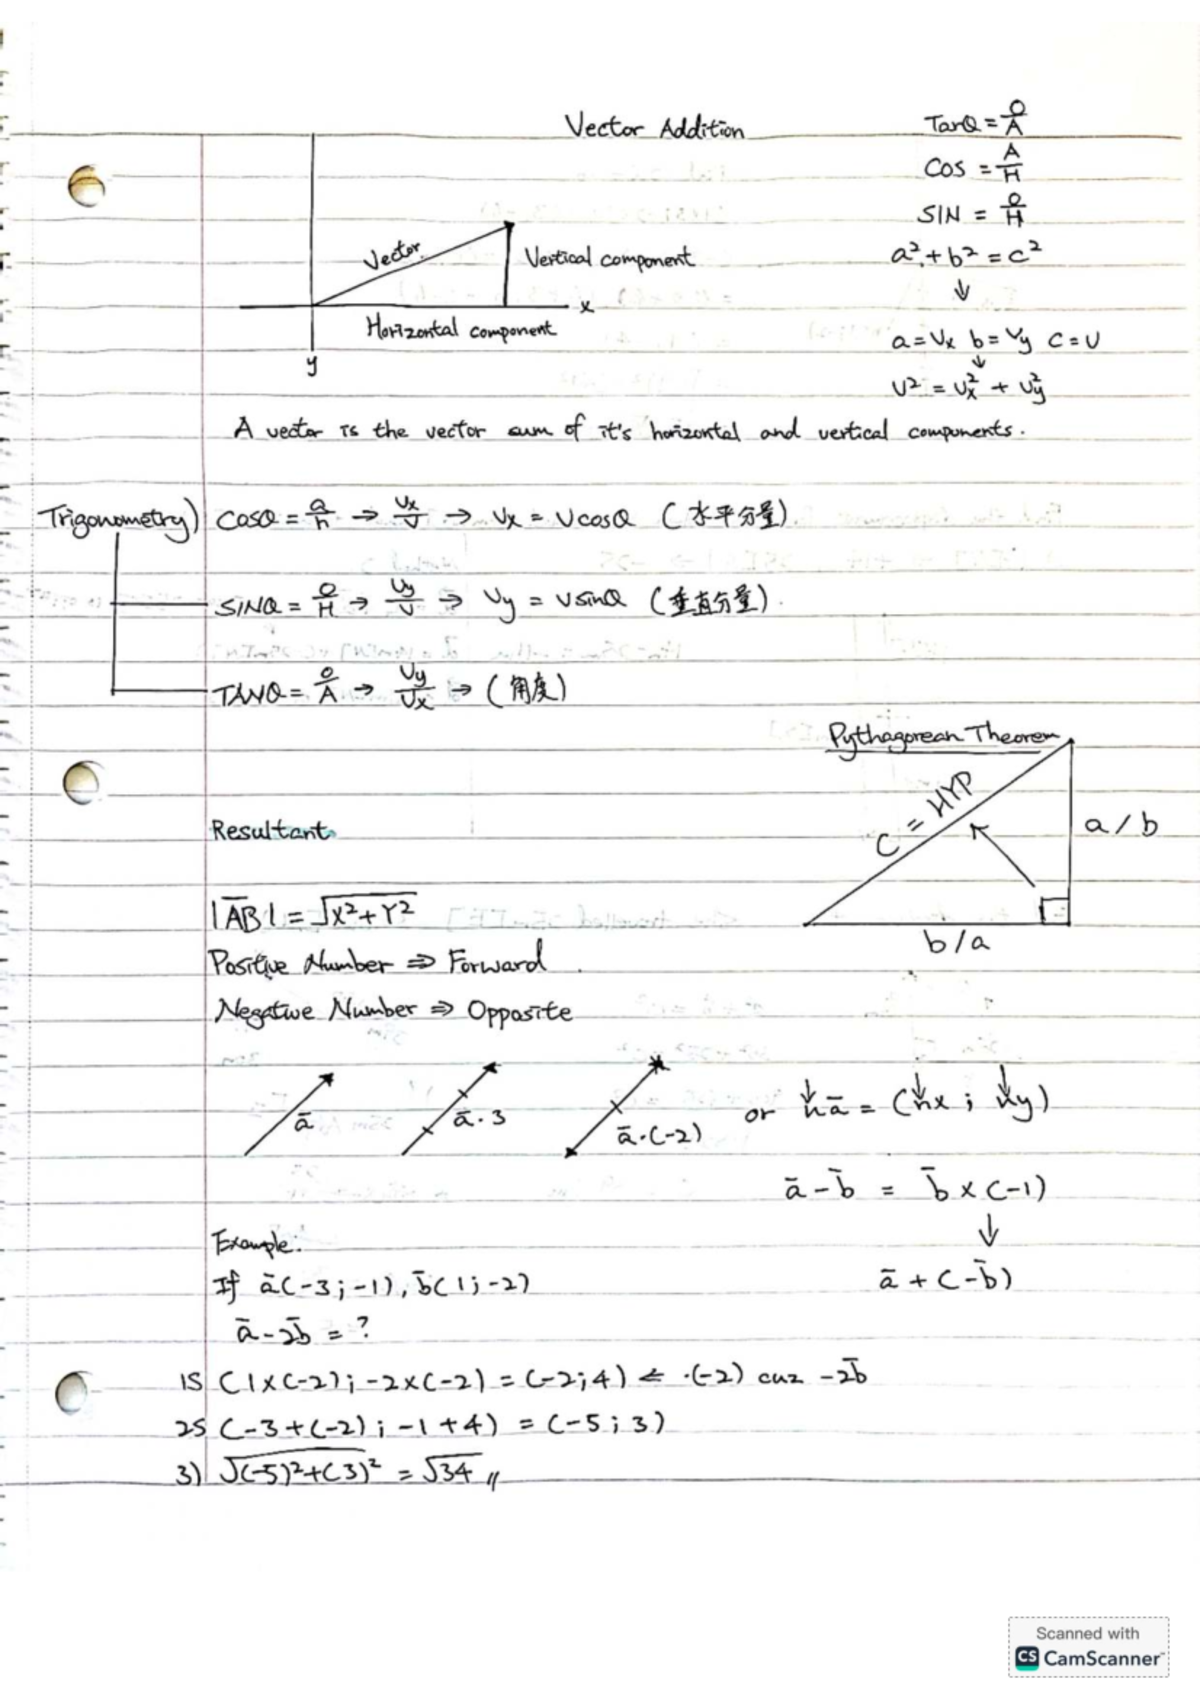 Vector Addition
Tanθ = O/A
COS = A/H
SIN = O/H
a² + b² = c²
↓
a = Vx b = Vy C = V
↓
V² = Vx² + Vy²
Vector
Vertical component
x
Horizontal component
y
A vector is the vector sum of it's horizontal and vertical components.
Trigonometry) COSθ = a/h → Vx/V → Vx = Vcosθ (水平分量)
SINθ = O/H → Vy/V → Vy = Vsinθ (垂直分量).
TANθ = O/A → Vy/Vx → (角度)
Pythagorean Theorem
C = HYP
a/b
b/a
Resultant
|AB̅| = √X²+Y²
Positive Number ⇒ Forward
Negative Number ⇒ Opposite
ā
ā·3
ā·(-2)
or nā = (nx ; ny)
ā - b̄ = b̄ x (-1)
↓
ā + (-b̄)
Example:
If ā(-3;-1), b̄(1;-2)
ā-2b̄ = ?
1) (1x(-2); -2x(-2) = (-2;4) ← ·(-2) cuz -2b̄
2) (-3+(-2); -1+4) = (-5;3)
3) √(-5)²+(3)² = √34 //
Scanned with
CS CamScanner